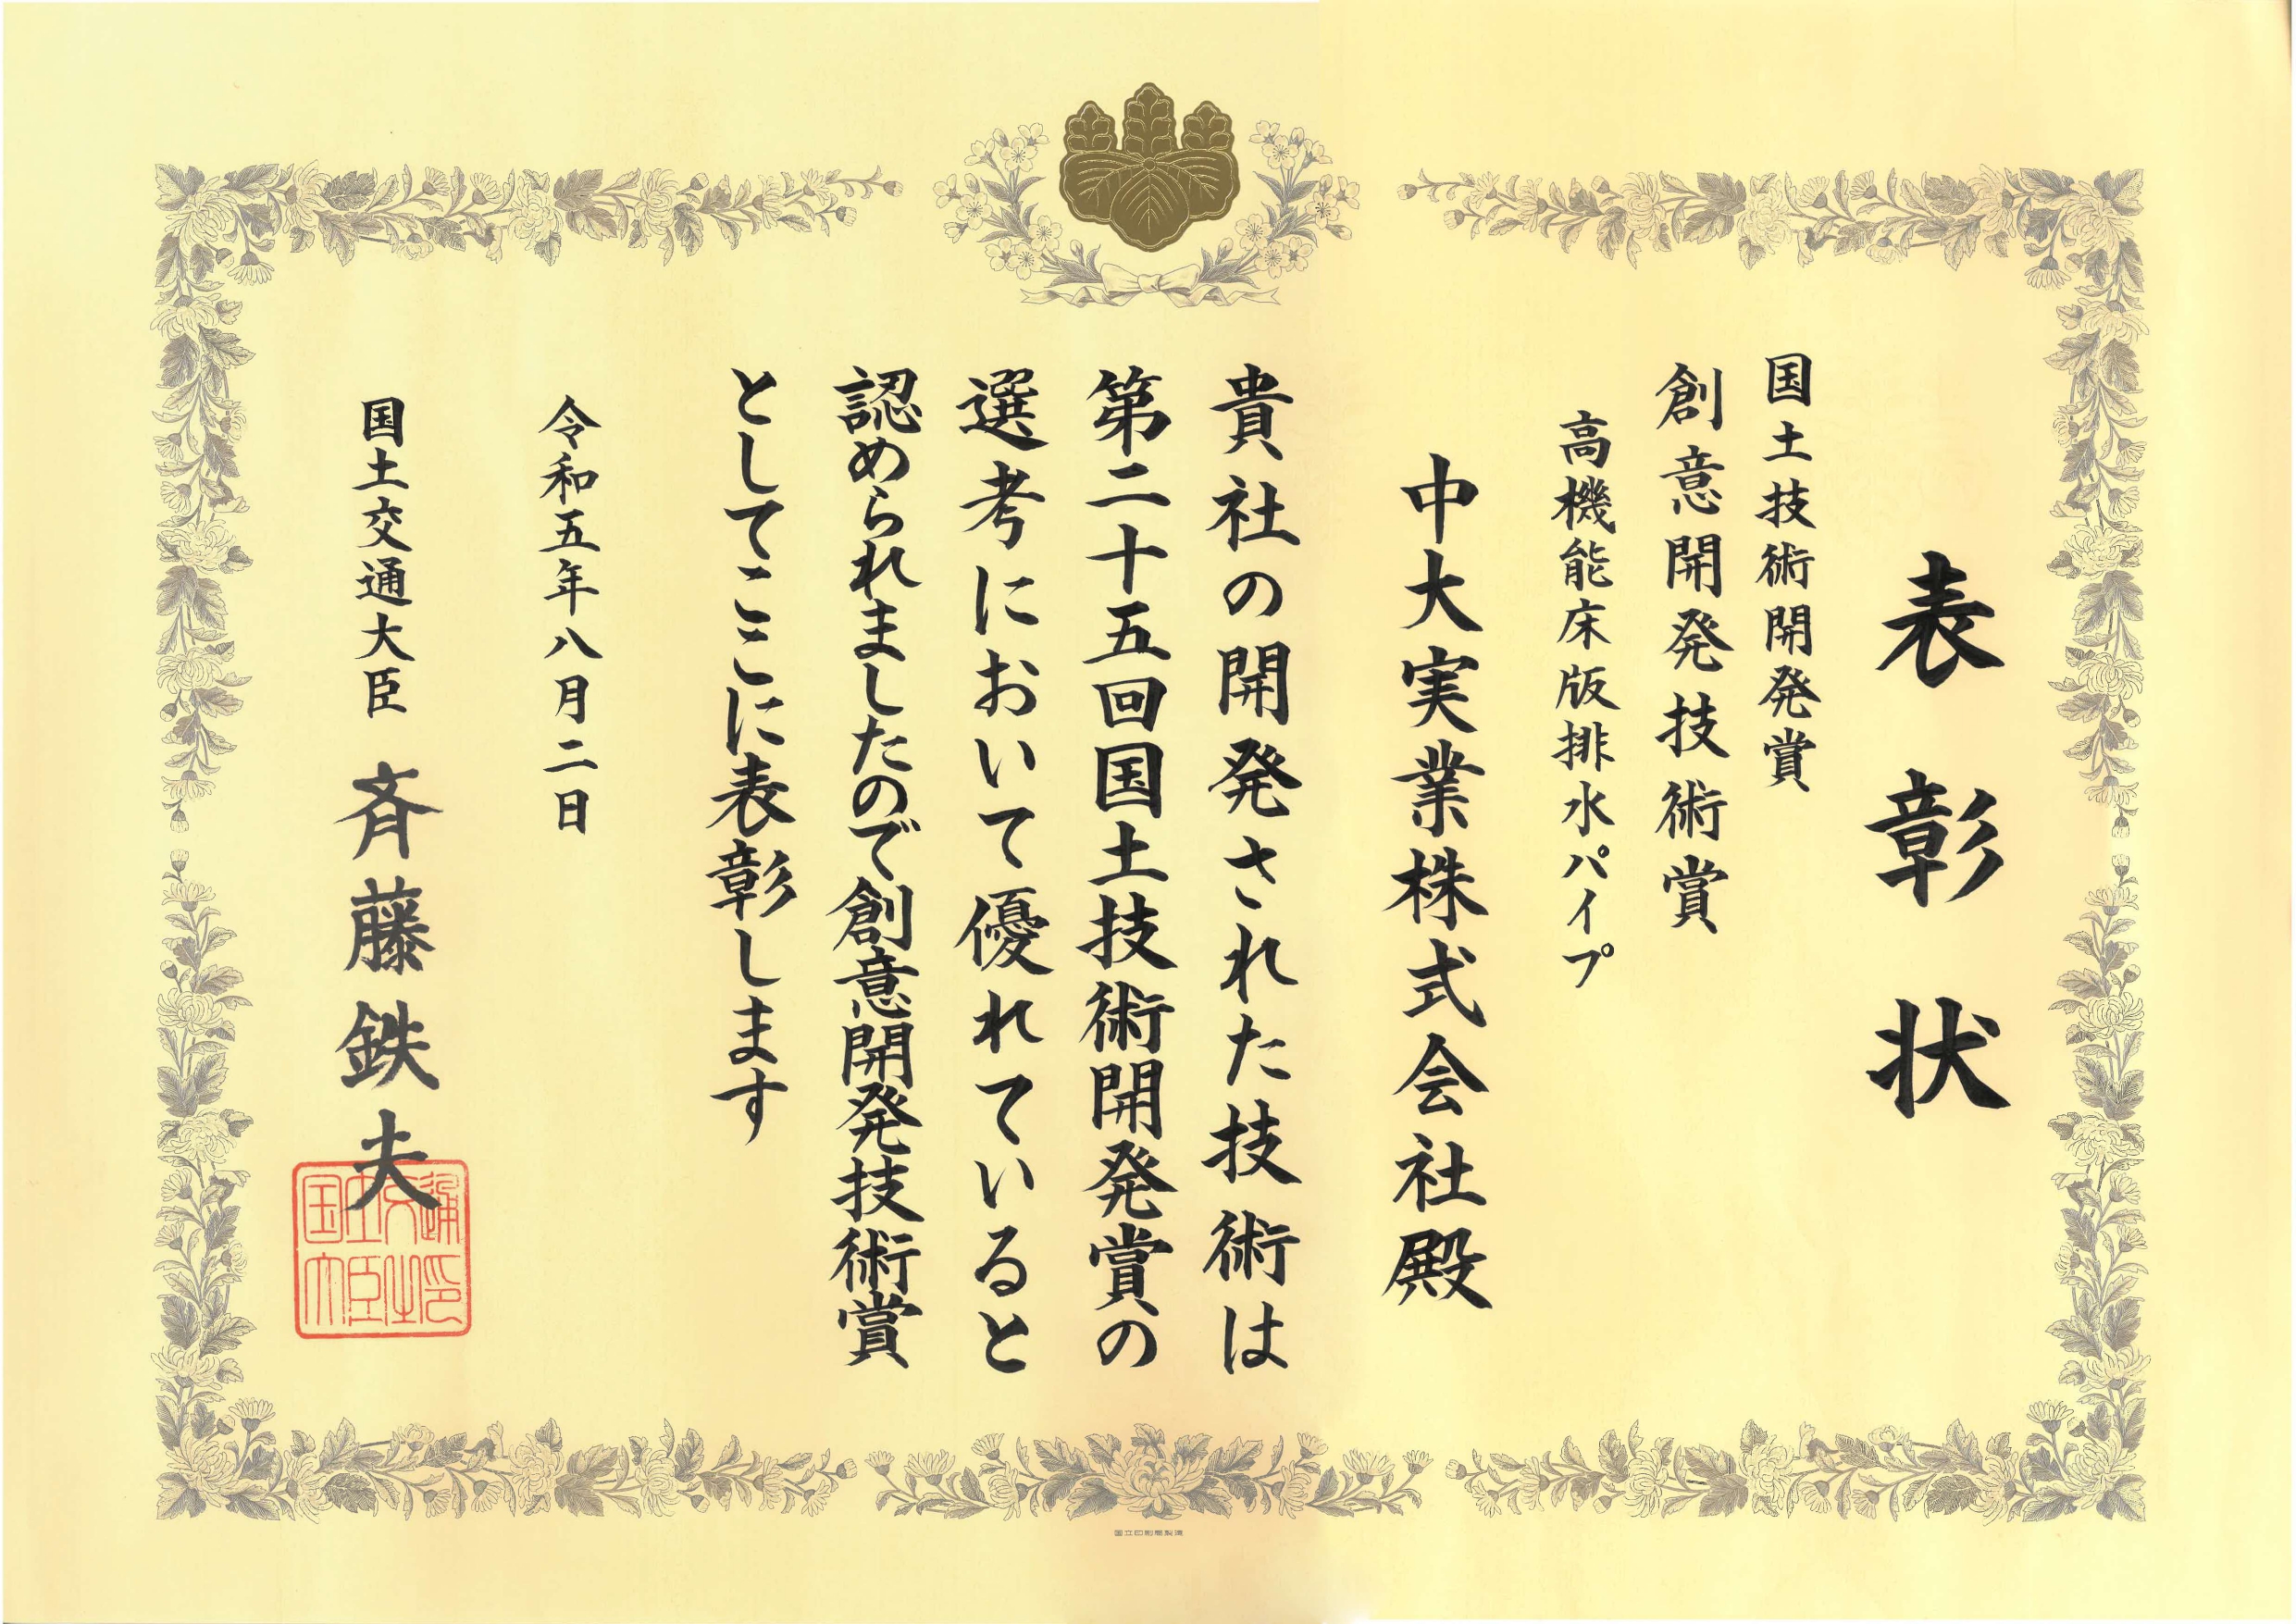 表彰状
国土技術開発賞
創意開発技術賞
高機能床版排水パイプ
中大実業株式会社殿
貴社の開発された技術は
第二十五回国土技術開発賞の
選考において優れていると
認められましたので創意開発技術賞
としてここに表彰します
令和五年八月二日
国土交通大臣 斉藤鉄夫
国土交通
大臣之印
国立印刷局製造